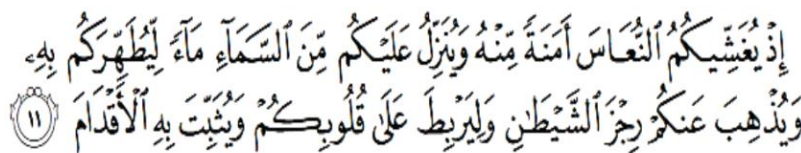 إِذْ يُغَشِّيكُمُ ٱلنُّعَاسَ أَمَنَةً مِّنْهُ وَيُنَزِّلُ عَلَيْكُم مِّنَ ٱلسَّمَآءِ مَآءً لِّيُطَهِّرَكُم بِهِۦ
وَيُذْهِبَ عَنكُمْ رِجْزَ ٱلشَّيْطَٰنِ وَلِيَرْبِطَ عَلَىٰ قُلُوبِكُمْ وَيُثَبِّتَ بِهِ ٱلْأَقْدَامَ ١١